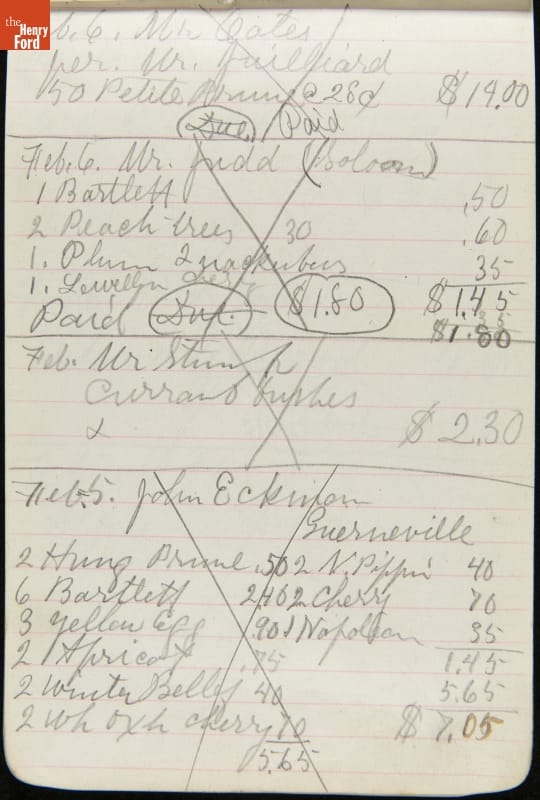 the
Henry
Ford
b. 6. Mr. Coates
per. Mr. Juilliard
50 Petite Prune @ 28¢ $14.00
Due. Paid
Feb. 6. Mr. Judd
1 Bartlett .50
2 Peach trees 30 .60
1. Plum 35
1.
Paid Due. $1.80 $1.45
$1.80
Feb. Mr Stump
Currant bushes
& $2.30
Feb. 5. John Eckman
Guerneville
2 Hung Prune .50 2 N. Pippin 40
6 Bartlett 2.40 2 Chery 70
3 Yellow Egg .90 1 Napoleon 35
2 Apricot .75 1.45
2 Winter Bellf 40 5.65
2 Wh oxh cherry 70 $7.05
5.65